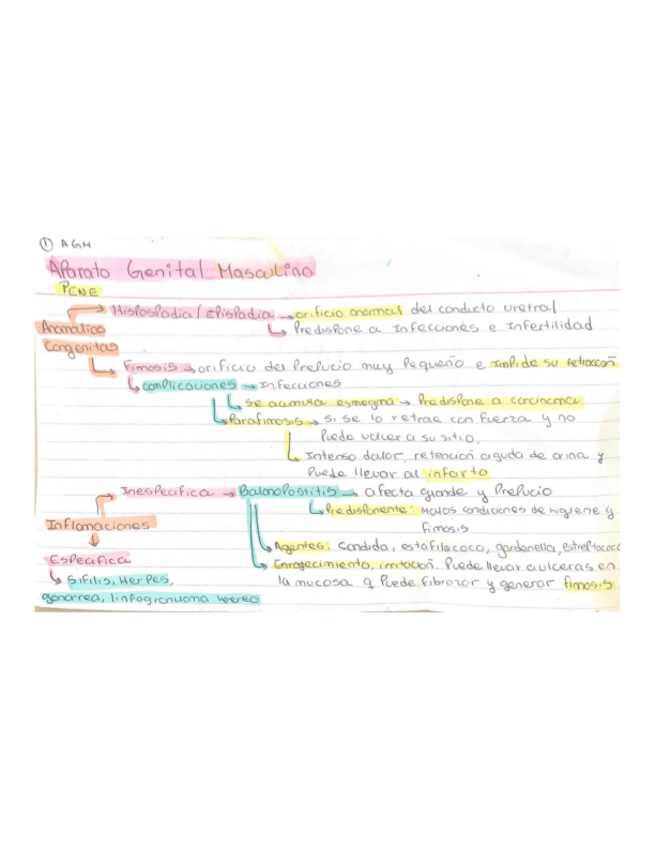 ① AGM
Aparato Genital Masculino
PENE
Anomalias Congenitas
Hispospadia / Epispadia → orificio anormal del conducto uretral
Predispone a Infecciones e Infertilidad
Fimosis → orificio del Prepucio muy Pequeño e Impide su retracción
complicaciones → Infecciones
se acumula esmegma → Predispone a carcinoma
Parafimosis → si se lo retrae con fuerza y no
Puede volver a su sitio.
Intenso dolor, retención aguda de orina y
Puede llevar al infarto
Inflamaciones
Inespecifica → BalanoPostitis → afecta glande y Prepucio
Predisponente: Malas condiciones de higuene y
fimosis
Agentes: Candida, estafilococo, gardenella, estreptococc
Enrojecimiento, irritación. Puede llevar a ulceras en
la mucosa q Puede fibrozar y generar fimosis
Especifica
Sifilis, Herpes,
gonorrea, linfogranuoma venereo